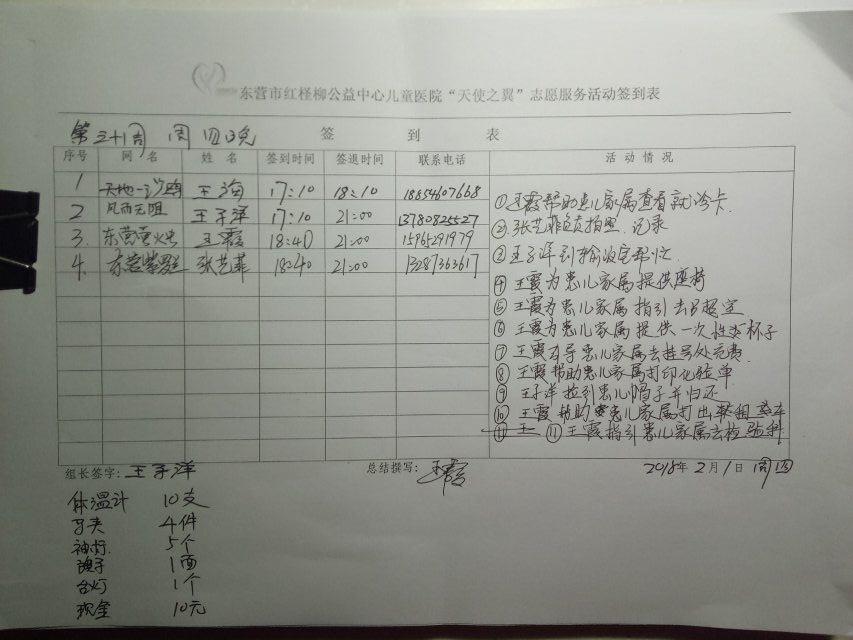 东营市红柽柳公益中心儿童医院“天使之翼”志愿服务活动签到表
第三十周 周四晚 签 到 表
序号 网名 姓名 签到时间 签退时间 联系电话 活动情况
1 天地一沙鸥 王海 17:10 18:10 18654607668
2 风雨无阻 王子洋 17:10 21:00 13780825527
3. 东营萤火虫 王霞 18:40 21:00 15965291979
4. 张艺菲 18:40 21:00 13287363617
①王霞帮助患儿家属查看就诊卡.
②张艺菲负责拍照、记录
③王子洋到输液室帮忙.
④王霞为患儿家属提供座椅
⑤王霞为患儿家属指引去B超室
⑥王霞为患儿家属提供一次性纸杯子
⑦王霞引导患儿家属去挂号处充费.
⑧王霞帮助患儿家属打印化验单
⑨王子洋捡到患儿帽子并归还
⑩王霞帮助患儿家属打出
⑪王霞指引患儿家属去检验科
组长签字: 王子洋 总结撰写: 王霞 2018年2月1日 周四
体温计 10支
马夹 4件
5个
1面
台灯 1个
现金 10元